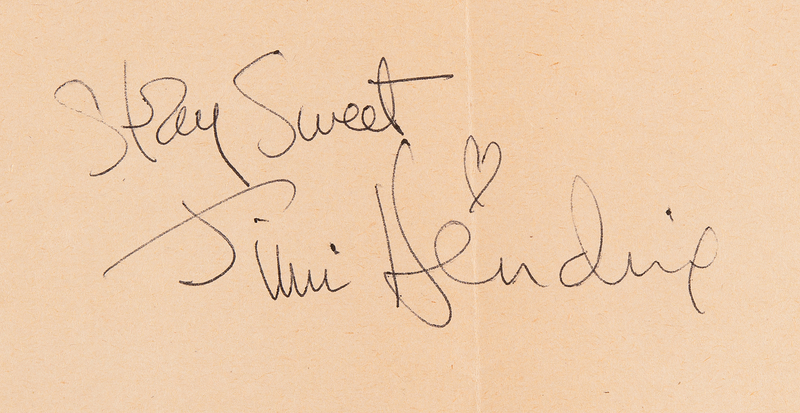 Stay Sweet
Jimi Hendrix